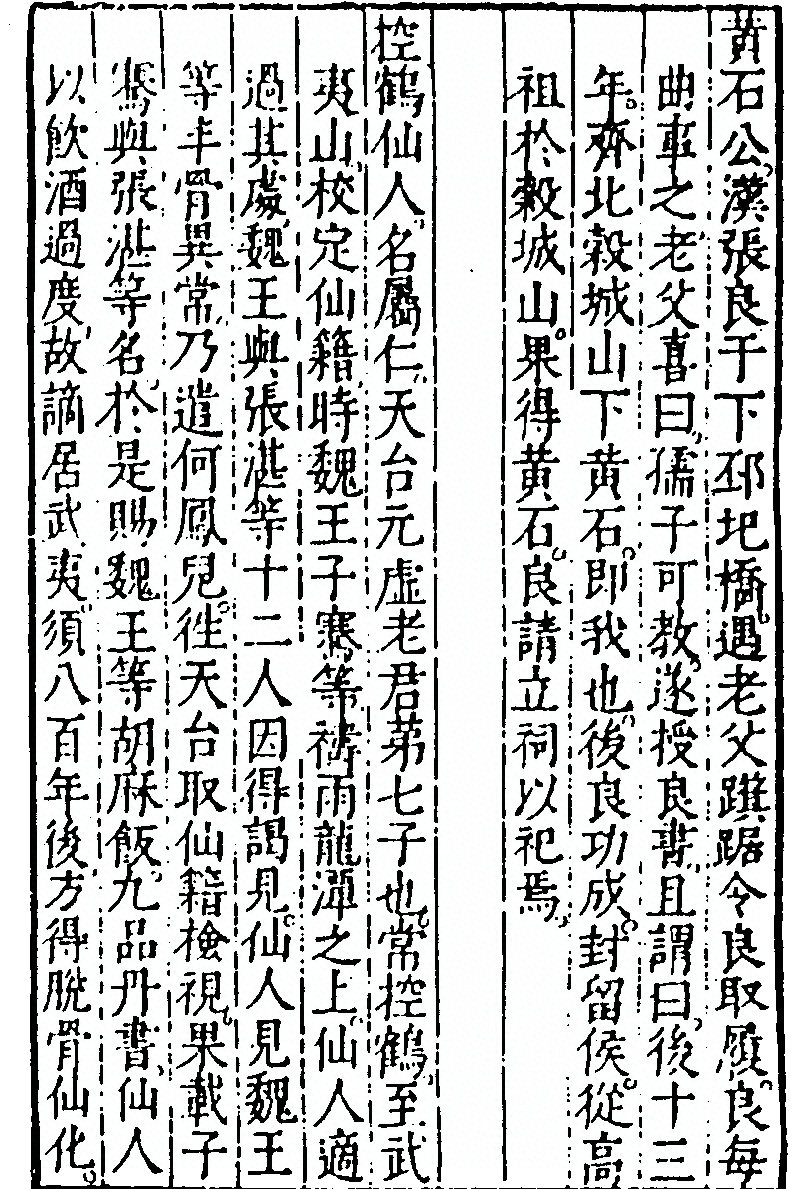 黄石公漢張良于下邳圯橋遇老父踑踞令良取履良每
曲事之老父喜曰孺子可教遂授良書且謂曰後十三
年齊北穀城山下黄石即我也後良功成封留侯從高
祖於穀城山果得黄石良請立祠以祀焉
控鶴仙人名屬仁天台元虛老君第七子也常控鶴至武
夷山校定仙籍時魏王子騫等禱雨龍潭之上仙人適
過其處魏王與張湛等十二人因得謁見仙人見魏王
等半骨異常乃遣何鳳兒徃天台取仙籍檢視果載子
騫與張湛等名於是賜魏王等胡麻飯九品丹書仙人
以飲酒過度故謫居武夷須八百年後方得脫骨仙化